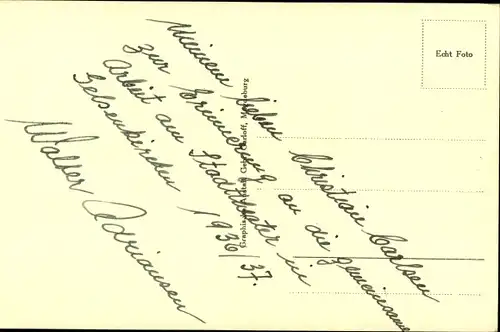 Meinem lieben Christian Carlsen
zur Erinnerung an die gemeinsame
Arbeit am Stadttheater in
Gelsenkirchen 1936/37.
Walter Adriansen
Echt Foto
Graphische Anstalt Gerloff, Magdeburg